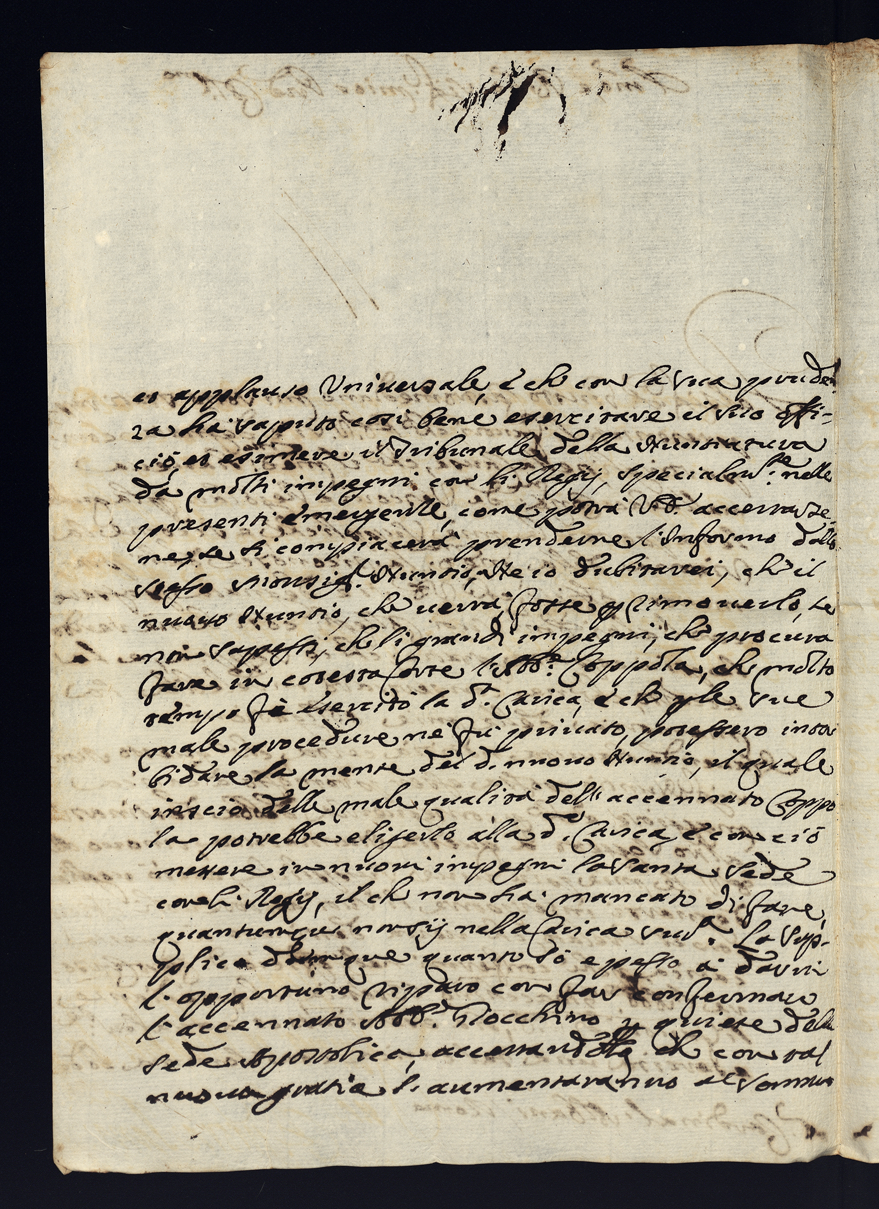 et applauso Universale, è che con la sua pruden
za hà saputo così bene esercitare il suo offi-
cio, et esimere il Tribunale della Nunziatura
da molti impegni con li Regij, specialm.te nelle
presenti emergenze, come potrà V.S. accertarse
ne, se si compiacerà prenderne l'Informo dallo
stesso Monsig.r Nunzio, Ne io dubitarei, ch'il
nuovo Nunzio, che verrà, fosse p rimoverlo, se
non sapessi, che li grandi impegni, che procura
fare in cotesta Corte l'Abb.e Coppola, che molto
tempo fà esercitò la d.a Carica, è che p le sue
male procedure ne fù privato, potessero intor
bidare la mente del d. nuovo Nunzio, il quale
inscio delle male qualità dell'accennato Coppo
la potrebbe eligerlo alla d.a Carica, è con ciò
mettere in nuovi impegni la Santa Sede
con li Regij, il che non hà mancato di fare,
quantunque non sij nella Carica sud.a La sup-
plico dunque quanto sò e posso à darvi
l'opportuno riparo con far confermare
l'accennato Abb.e p quiete della
Sede Apostolica, accertandola che con tal
nuova gratia si aumentaranno al sommo